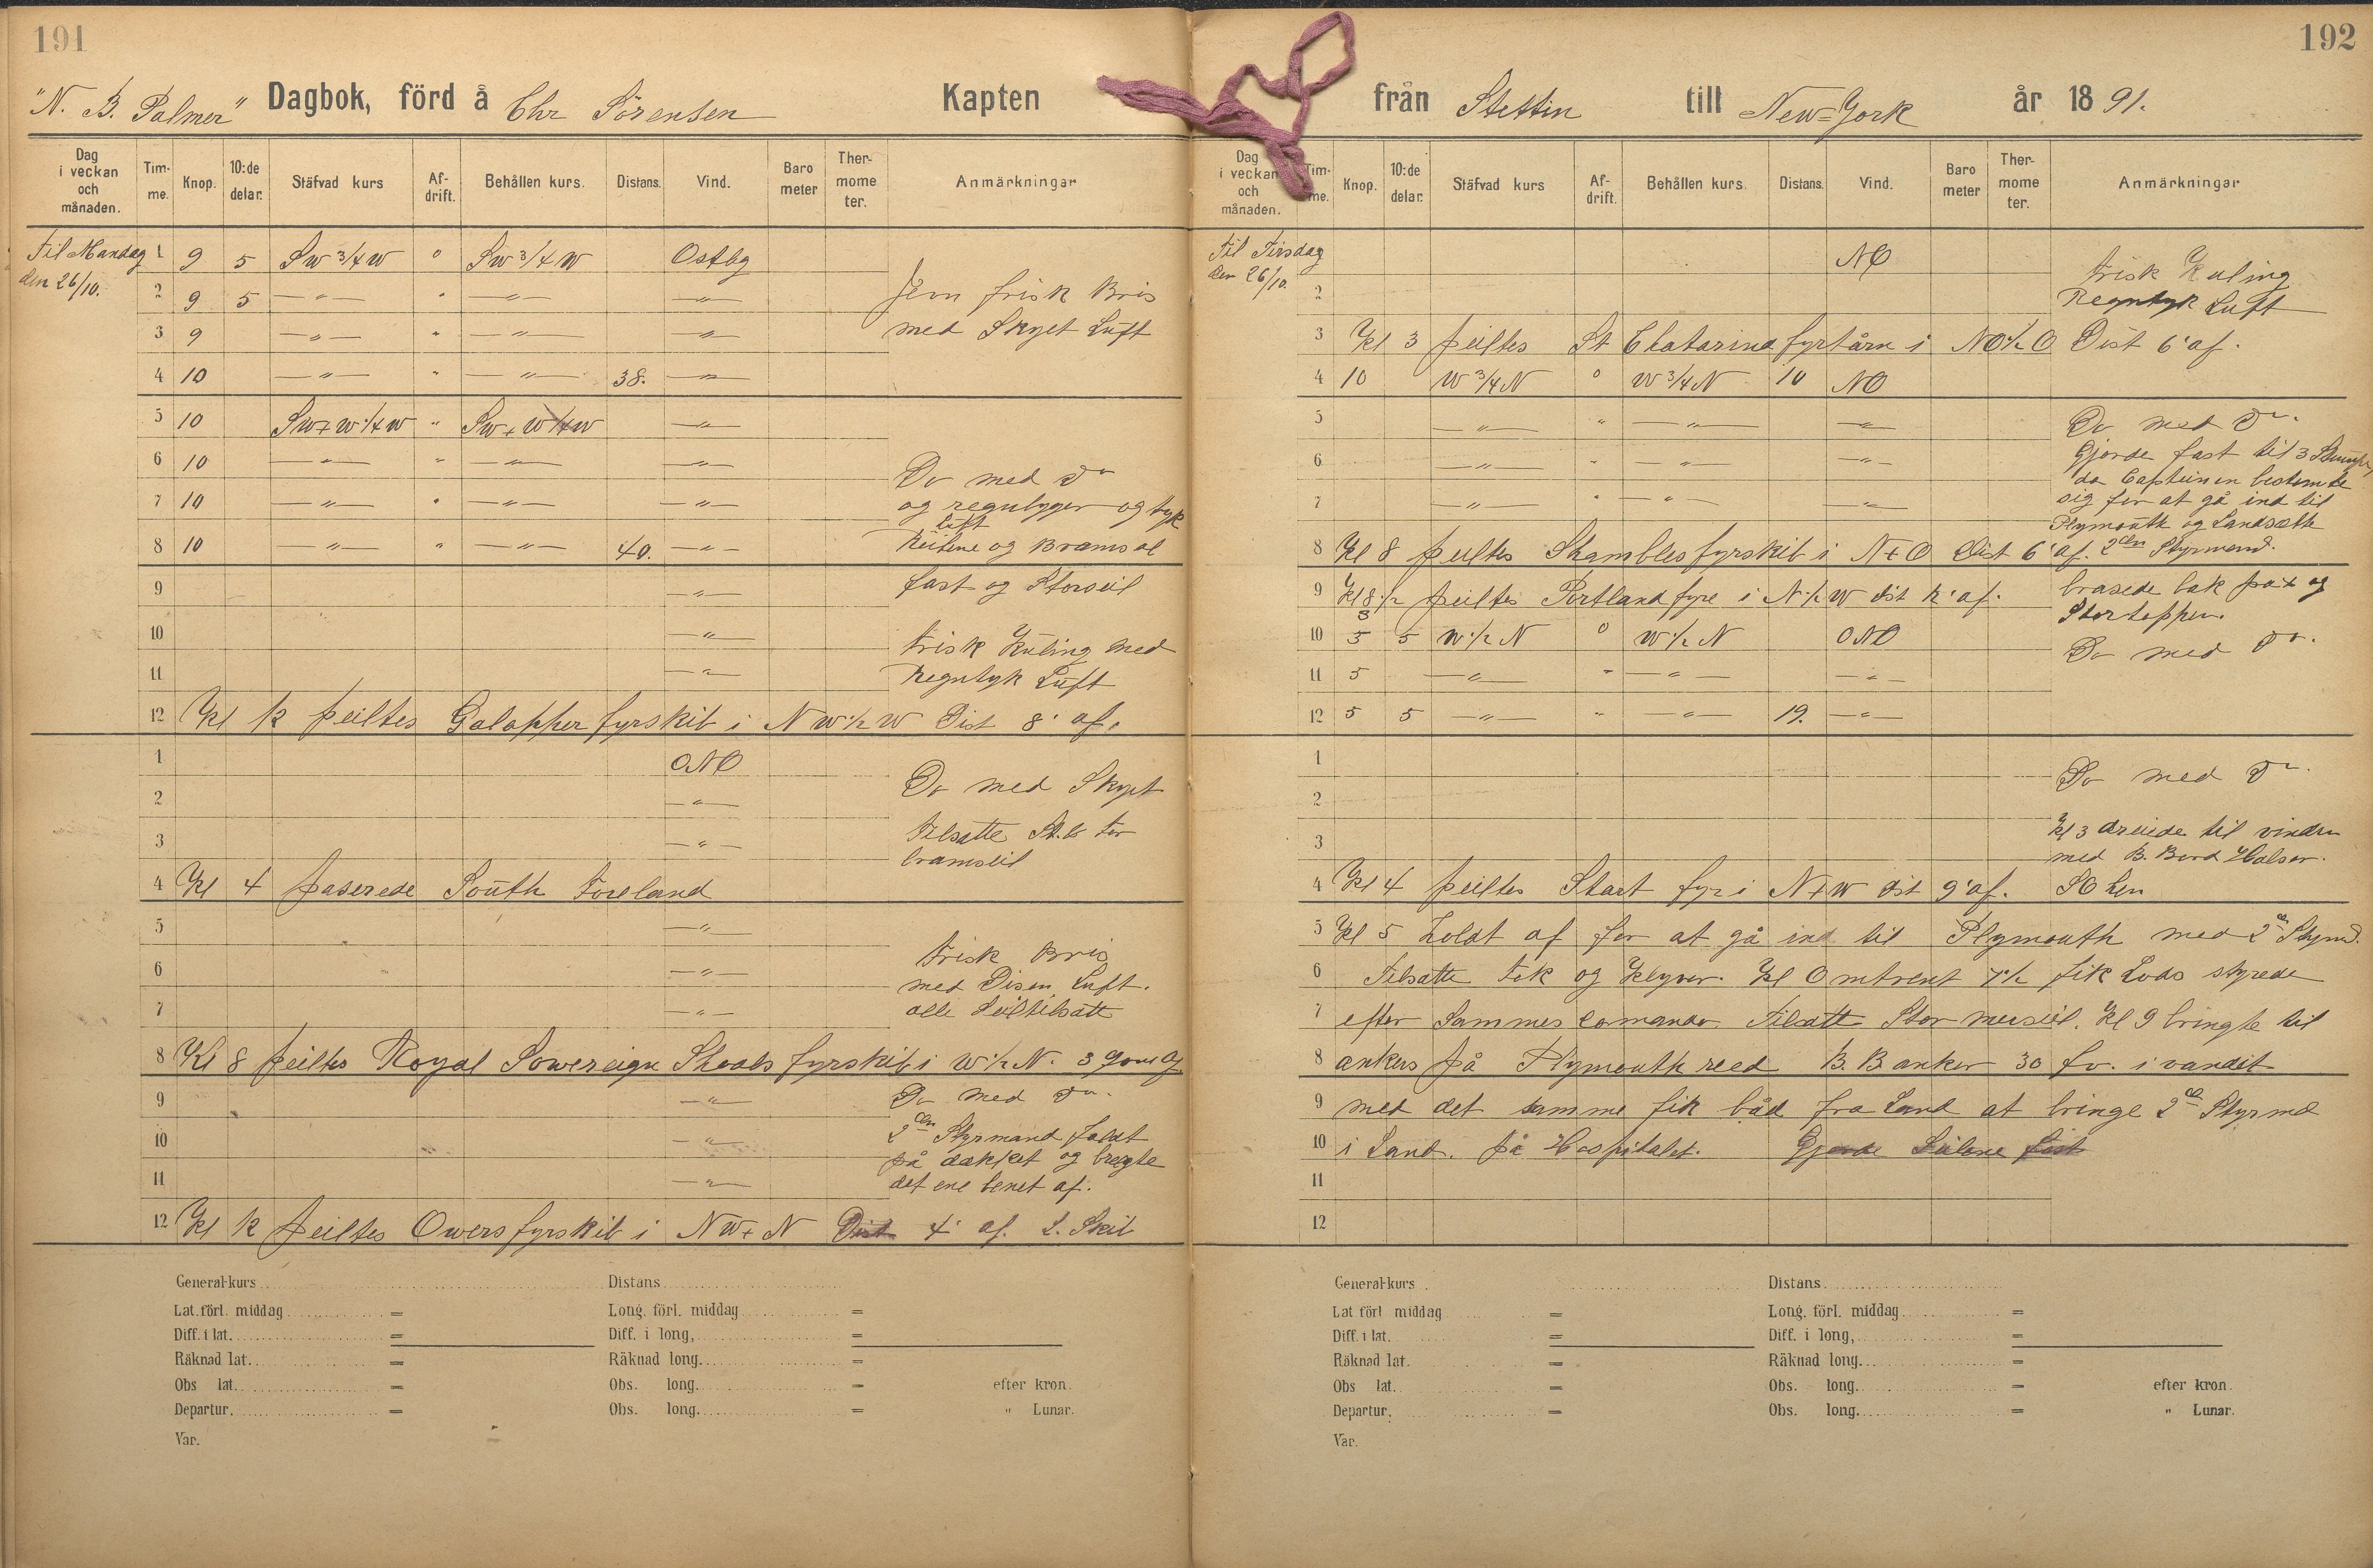 191
"N. B. Palmer" Dagbok, förd å Chr Sörensen Kapten
Dag i veckan och månaden. Tim-me. Knop. 10:de delar. Stäfvad kurs Af-drift. Behållen kurs. Distans. Vind. Baro meter Ther-mome ter. Anmärkningar
Til Mandag 1 9 5 Sw 3/4 W " Sw 3/4 W Ostlg
den 26/10. 2 9 5 —"— " —"— —"— Jevn frisk Bris
3 9 —"— " —"— —"— med Skyet Luft
4 10 —"— " —"— 38. —"—
5 10 Sw+w 1/4 w " Sw+w 1/4 w —"—
6 10 —"— " —"— —"— Do med do
7 10 —"— " —"— —"— og regnbyger og tyk
luft
8 10 —"— " —"— 40. —"— Röilene og Bramseil
9 —"— fast og Storseil
10 —"— Frisk Kuling med
11 —"— Regntyk Luft
12 Kl 12 peiltes Galopper fyrskib i NW 1/2 W Dist 8' af.
1 ONO
2 —"— Do med Skyet
3 —"— Tilsatte St.b. For
bramseil
4 Kl 4 paserede South Foreland
5 —"—
6 —"— Frisk Bris
med Disen Luft.
7 —"— alle Seil tilsatt
8 Kl 8 peiltes Royal Sowereign Shoals fyrskib i W 1/2 N. 3
9 —"— Do med do.
10 —"— 2den Styrmand faldt
på dækket og brergte
11 —"— det ene benet af.
12 Kl 12 peiltes Owers fyrskib i NW+N Dist 4' af.
General-kurs Distans
Lat. förl. middag = Long. förl. middag =
Diff. i lat. = Diff. i long, =
Räknad lat. = Räknad long. =
Obs lat. = Obs. long. = efter kron.
Departur. = Obs. long. = " Lunar.
Var. =
192
från Stettin till New-York år 18 91.
Dag i veckan och månaden. Tim-me. Knop. 10:de delar. Stäfvad kurs Af-drift. Behållen kurs. Distans. Vind. Baro meter Ther-mome ter. Anmärkningar
Til Tirsdag NO
den 26/10. 2 Frisk Kuling
Regntyk Luft
3 Kl 3 peiltes St Chatarina fyrtårn i NO 1/2 O Dist 6' af.
4 10 W 3/4 N " W 3/4 N 10 NO
5 —"— " —"— —"— Do med do.
6 —"— " —"— —"— Gjorde fast til 3
da Capteinen bestemte
7 —"— " —"— —"— sig for at gå ind til
Plymouth og Landsætte
8 Kl 8 peiltes Shambles fyrskib i N+O Dist 6' af. 2den Styrmand.
9 Kl 8 1/2 peiltes Portland fyre i N 1/2 W dist 12' af. brasede bak på + og
Stortoppen.
10 5 5 W 1/2 N " W 1/2 N ONO
11 5 —"— " —"— —"— Do med do.
12 5 5 —"— " —"— 19. —"—
1
2 Do med do.
3 Kl 3 dreiede til vinden
med B. Bord Halser.
4 Kl 4 peiltes Start fyr i N+W dist 9' af. SO hen
5 Kl 5 holdt af for at gå ind til Plymouth med 2den Styrmd.
6 Tilsatte Fok og Klyver. Kl Omtrent 7 1/2 fik Lods styrede
7 efter Sammes comando. Tilsatt Stor merseil. Kl 9 bringte til
8 ankers på Plymouth reed B. B. anker 30 fv. i vandet
9 med det samme fik båd fra Land at bringe 2den Styrmd
10 i Land. på Hospitalet. Gjorde Seilene fast
11
12
General-kurs Distans
Lat förl middag = Long. förl. middag =
Diff. i lat. = Diff. i long, =
Räknad lat. = Räknad long. =
Obs lat. = Obs. long. = efter kron.
Departur. = Obs. long. = " Lunar.
Var.